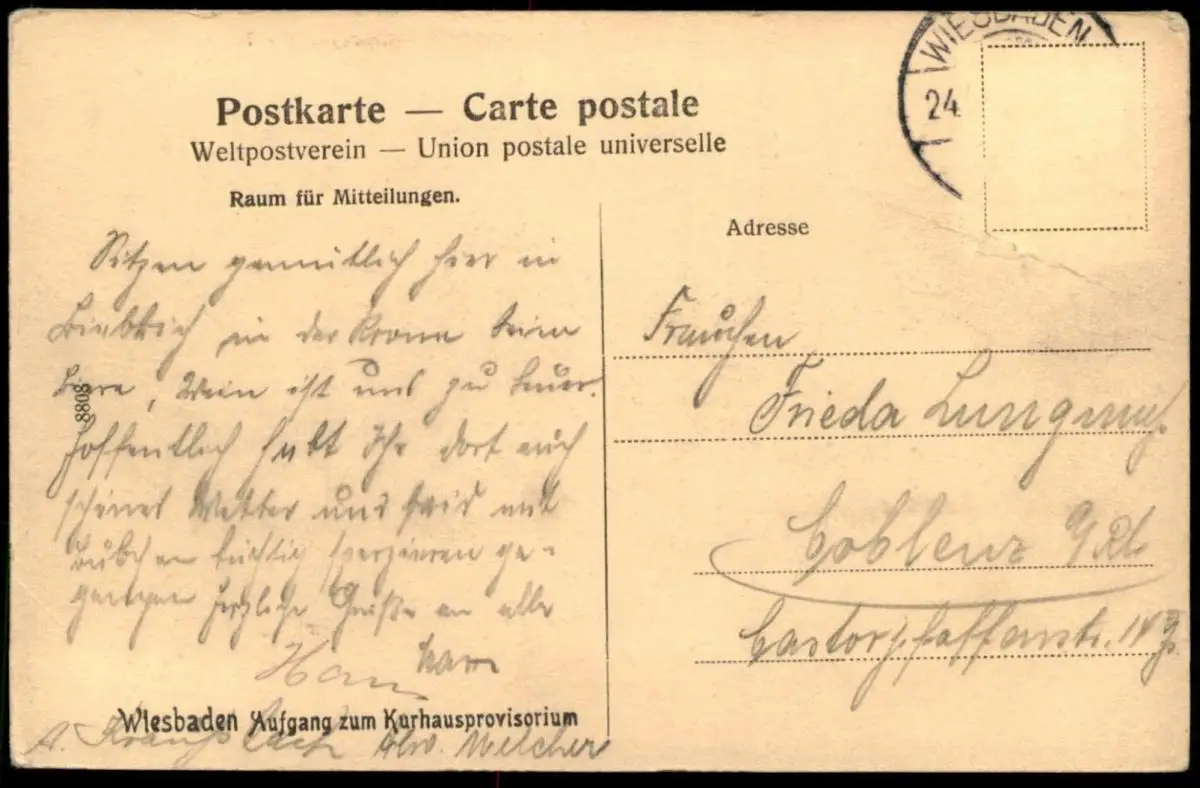 Postkarte — Carte postale
Weltpostverein — Union postale universelle
Raum für Mitteilungen.
WIESBADEN
24
Adresse
Sitzen gemütlich hier in
Biebrich in der Krone beim
Biere, Wein ist uns zu teuer.
Hoffentlich habt Ihr dort auch
schönes Wetter und seid mit
Bubchen tüchtig spazieren ge-
gangen herzliche Grüße an alle
Hans
8808
Wiesbaden Aufgang zum Kurhausprovisorium
Melcher
Frauchen
Frieda
Coblenz a/Rh.
Castorpfaffenstr.